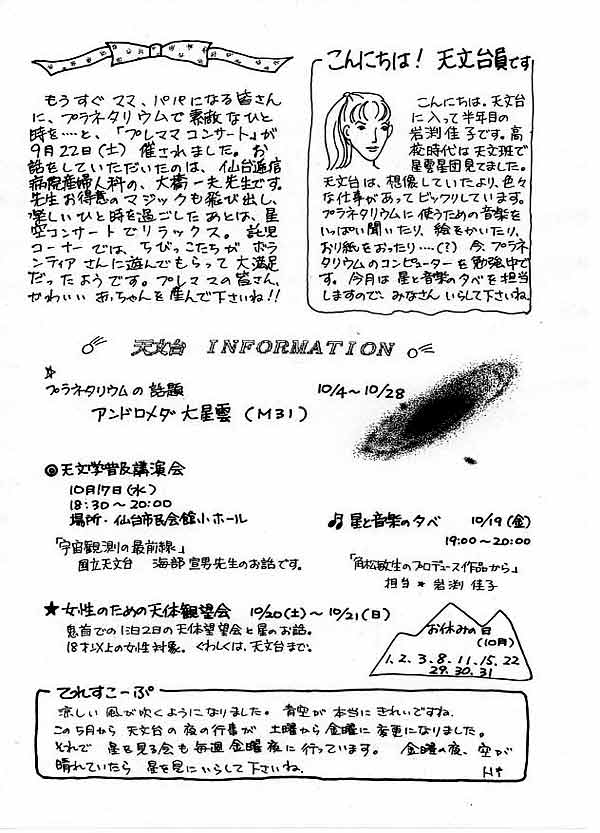 もうすぐママ、パパになる皆さん
に、プラネタリウムで素敵なひと
時を…と、「プレママコンサート」が
9月22日(土) 催されました。お
話をしていただいたのは、仙台逓信
病院産婦人科の、大橋一夫先生です。
先生お得意のマジックも飛び出し、
楽しいひと時を過ごしたあとは、星
空コンサートでリラックス。託児
コーナーでは、ちびっこたちがボラ
ンティアさんに遊んでもらって大満足
だったようです。プレママの皆さん、
かわいい赤ちゃんを産んで下さいね!!
こんにちは! 天文台員です
こんにちは。天文台
に入って半年目の
岩渕佳子です。高
校時代は天文班で
星雲星団見てました。
天文台は、想像していたより、色々
な仕事があってビックリしています。
プラネタリウムに使うための音楽を
いっぱい聞いたり、絵をかいたり、
おり紙をおったり…(?) 今、プラネ
タリウムのコンピューターを勉強中で
す。今月は星と音楽の夕べを担当
しますので、みなさんいらして下さいね。
天文台 INFORMATION
☆
プラネタリウムの話題 10/4~10/28
アンドロメダ大星雲 (M31)
◎天文学普及講演会
10月17日(水)
18:30~20:00
場所・仙台市民会館小ホール
「宇宙観測の最前線」
国立天文台 海部宣男先生のお話です。
♫ 星と音楽の夕べ 10/19(金)
19:00~20:00
「角松敏生のプロデュース作品から」
担当 * 岩渕佳子
★女性のための天体観望会 10/20(土)~10/21(日)
泊2日の天体望望会と星のお話。
18才以上の女性対象。くわしくは、天文台まで。
お休みの日
(10月)
1.2.3.8.11.15.22
29.30.31
てれすこーぷ
涼しい風が吹くようになりました。青空が本当にきれいですね。
この5月から天文台の夜の行事が土曜から金曜に変更になりました。
それで星を見る会も毎週金曜夜に行っています。金曜の夜、空が
晴れていたら星を見にいらして下さいね。